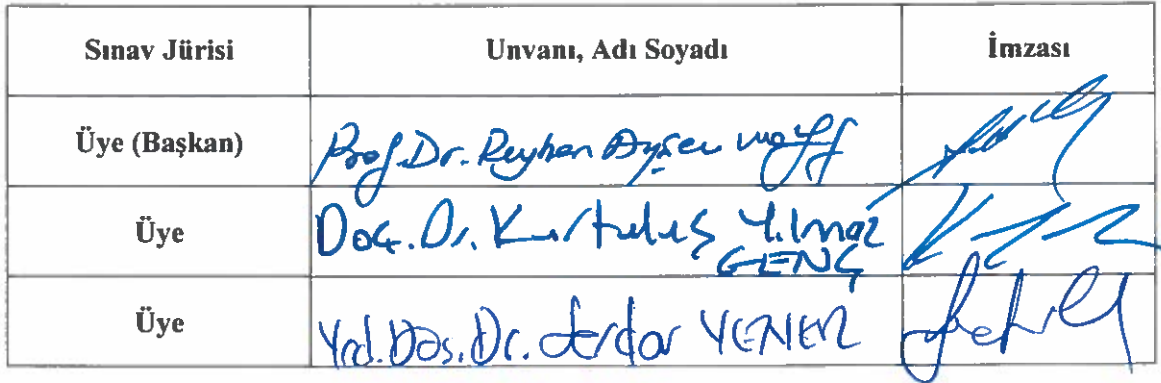 Sınav Jürisi Unvanı, Adı Soyadı İmzası
Üye (Başkan) Prof. Dr. Reyhan Ayşen Wolff
Üye Doç. Dr. Kurtuluş Yılmaz
GENÇ
Üye Yrd. Doç. Dr. Serdar YENER